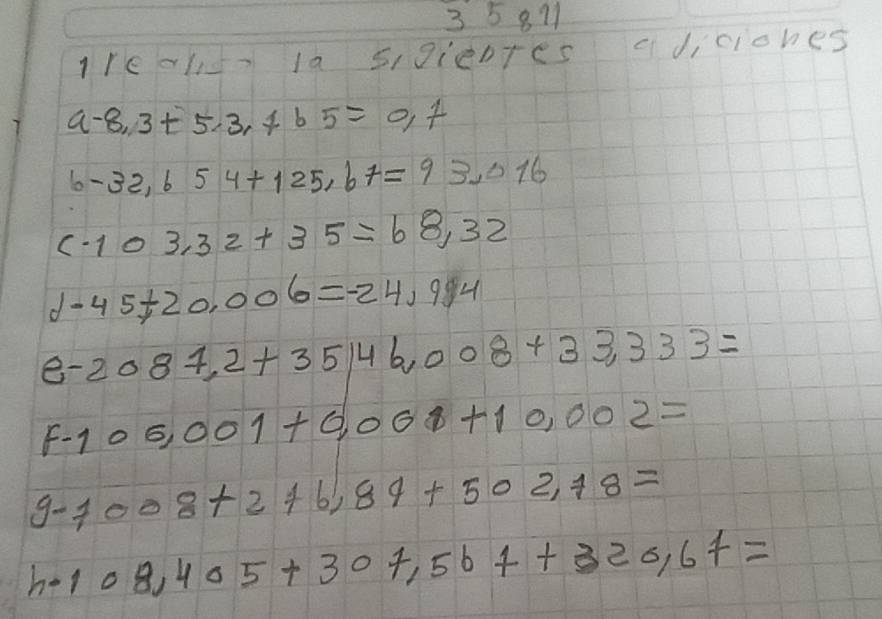 3 5 811
1 la sigientes adiciones
a-8,3+5,3,765=0,7
b-32,654+125,67=93,016
c-103,32+35=68,32
d-45+20,006=-24,994
e-2087,2+3546,008+33,333=
F-106,001+0,001+10,002=
g-7008+276,89+502,78=
h-108,405+307,567+320,67=